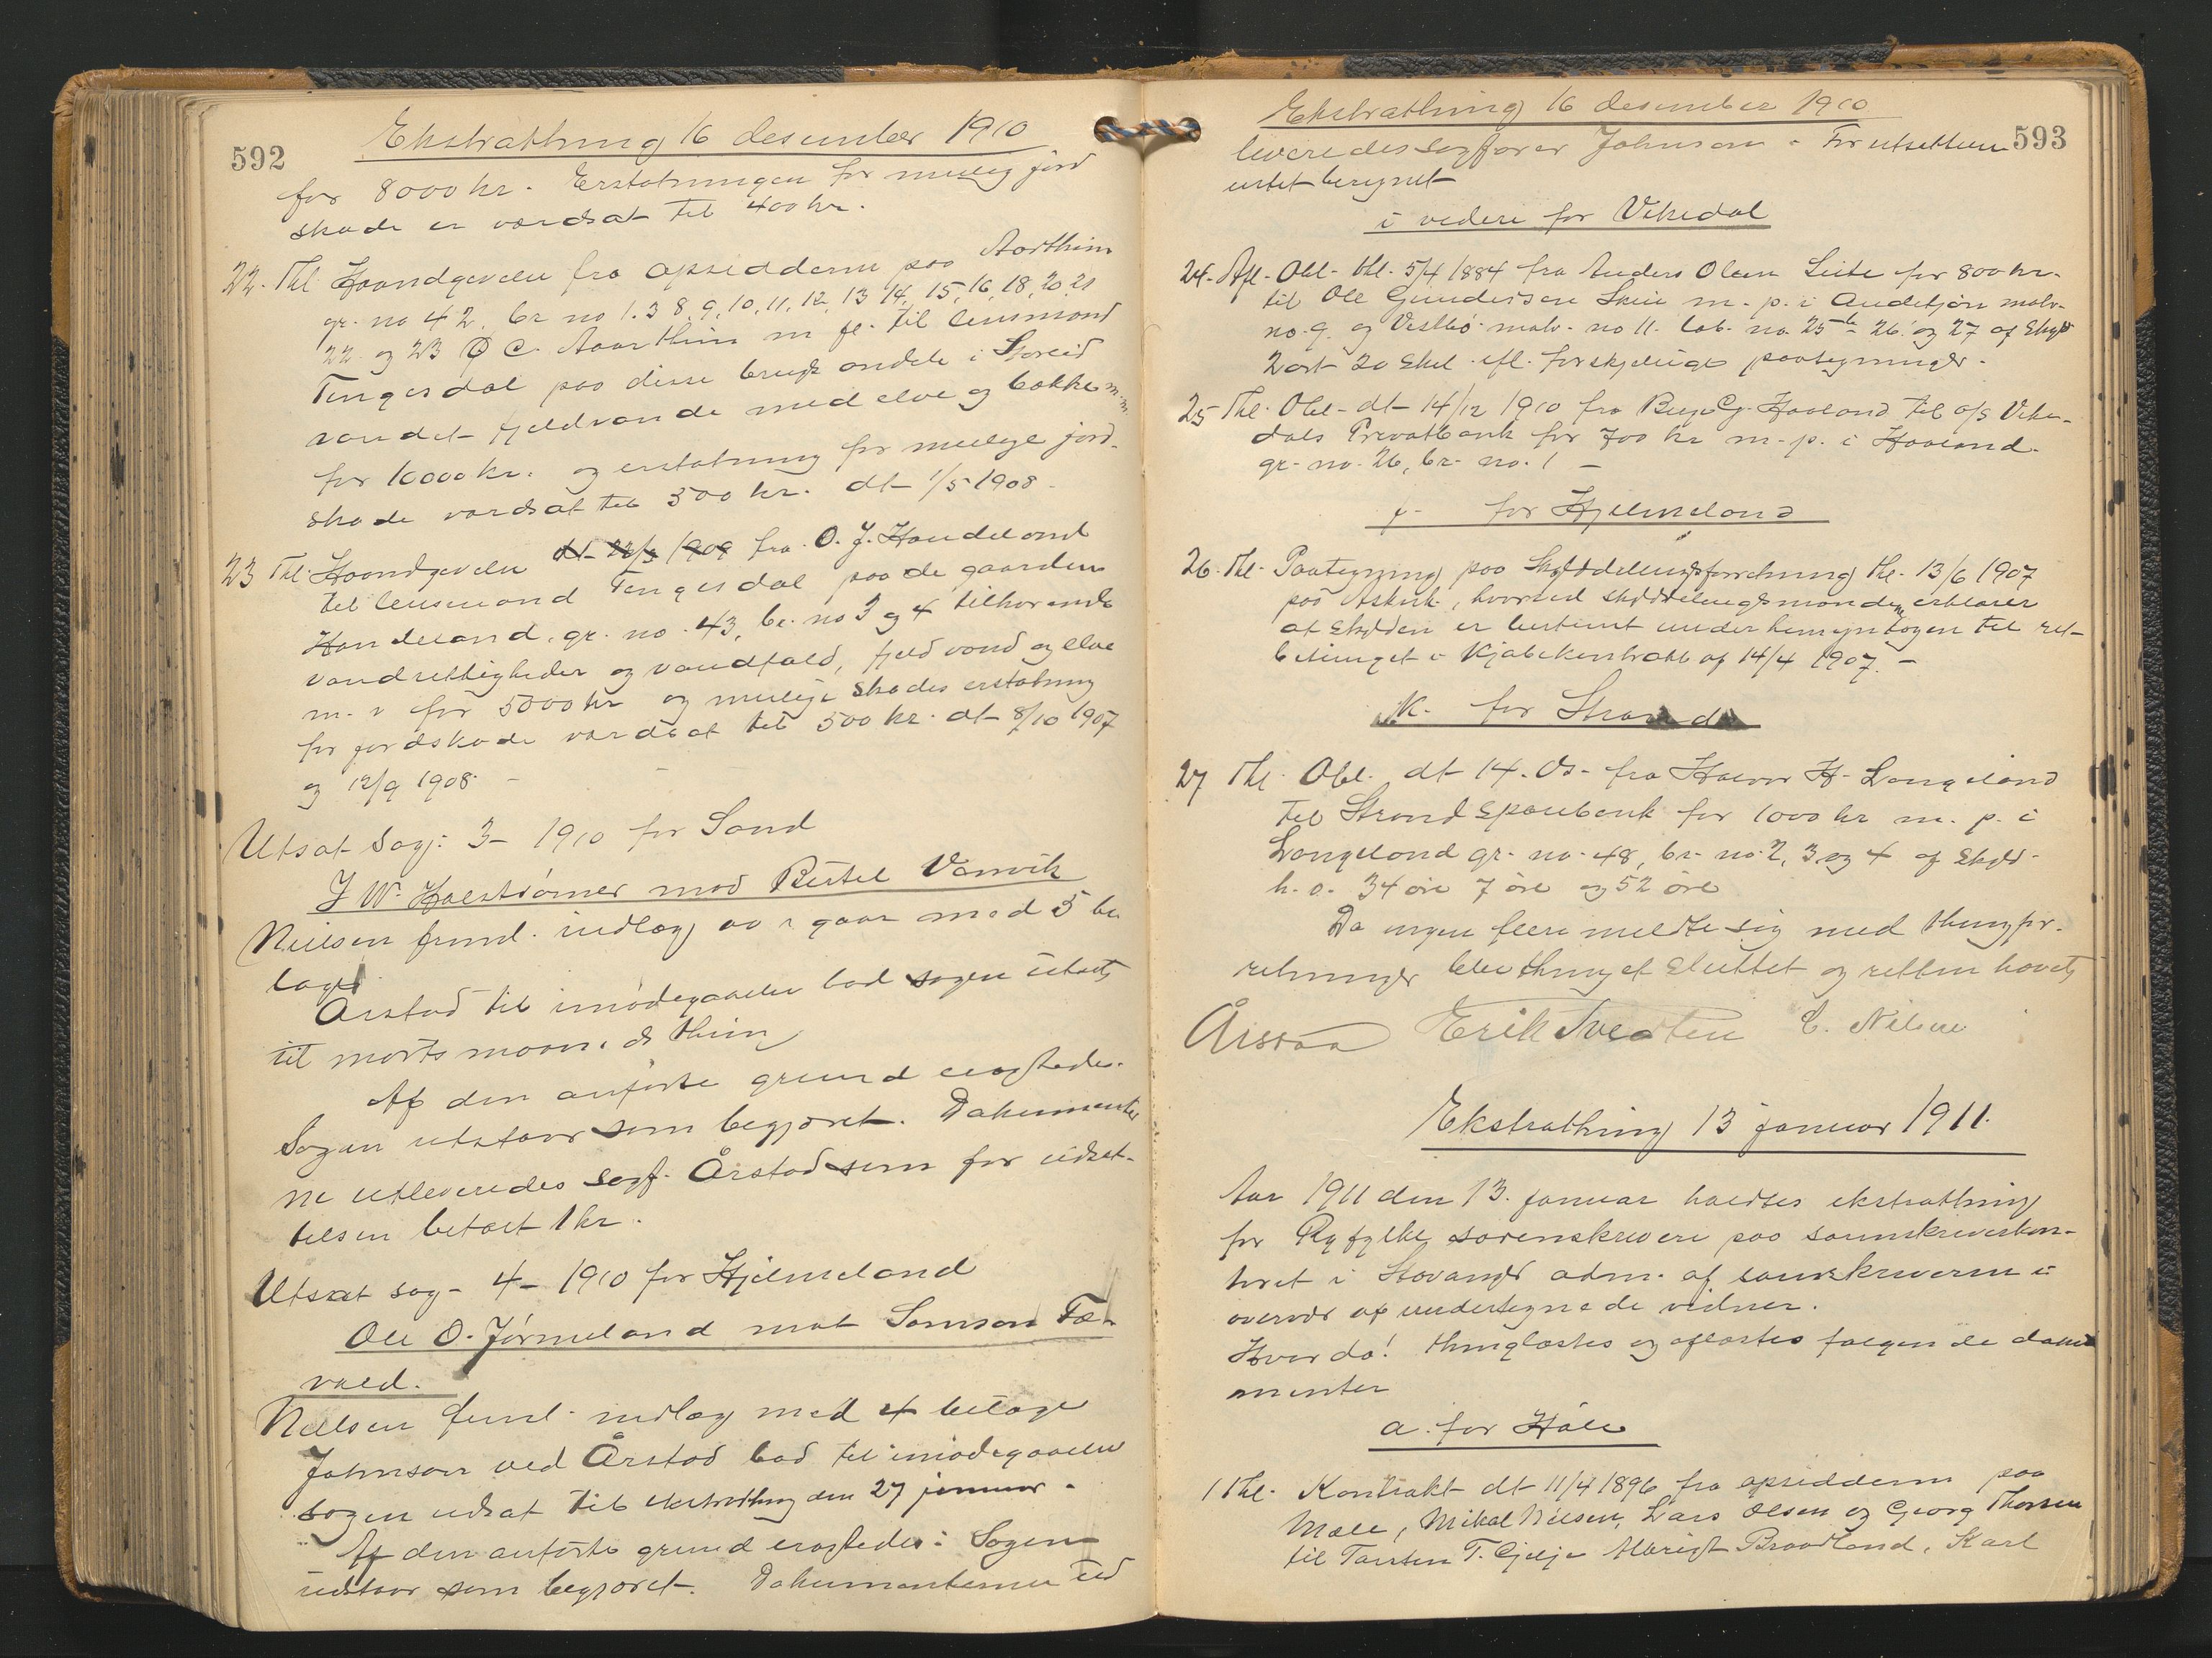 592
Ekstrathing 16 desember 1910
for 8000 kr. Erstatningen for mulig jord
skade er værdsat til 400 kr.
22. Thl. Haandgivelse fra opsidderne paa Aarthun
gr. no 42, br no 1. 3 8, 9, 10, 11, 12, 13 14, 15, 16, 18, 20, 21
22 og 23 C. Aarthun m fl. til lensmand
Tengesdal paa disse bruks andele i
vandet fjeldvande med elve og bække m.m.
for 10000 kr. og erstatning for mulige jord-
skade værdsat til 500 kr. dt 1/5 1908 -
23 Thl. Haandgivelse dt 1909 fra O. J. Handeland
til lensmand Tengesdal paa de gaarden
Handeland, gr. no. 43, br. no 3 og 4 tilhørende
vandrettigheder og vandfald, fjeldvand og elve
m. v for 5000 kr og mulige skades erstatning
for jordskade værdsat til 500 kr. dt 8/10 1907
og 12/9 1908. -
Utsat Sag: 3 - 1910 for Sand
J W. mod Bertel Vanvik
Nielsen freml. indlæg av i gaar med 5 bi
lage
Årstad til imødegaaelse bad sagen utsat
til marts maaneds thing
Af den anførte grund eragtedes.
Sagen utstaar som begjæret. Dokumenter
ne utleveredes sagf. Årstad som for udsæt-
telsen betalt 1 kr.
Utsat sag - 4 - 1910 for Hjelmeland
Ole O. Jørmeland mot Samson Tæ-
vold.
Nielsen freml. indlæg med 4 bilage
Johnson ved Årstad bad til imødegaaelse
sagen udsat til ekstrathing den 27 januar.
Af den anførte grund eragtedes: Sagen
udstaar som begjæret. Dokumenterne ud
593
Ekstrathing 16 desember 1910
leveredes sagfører Johnson - For utsættelsen
intet beregnet
i videre for Vikedal
24. Afl. Obl. thl. 5/4 1884 fra Anders Olsen Leite for 800 kr.
til Ole Gundersen m. p. i matr.
no. 9. og Vestbø matr. no 11. løb. no. 25 26 og 27 af skyld
2 ort 20 skel. efl. forskjellige paategninger.
25 Thl. Obl. dt 14/12 1910 fra G. Haaland til a/s Vike-
dals Privatbank for 700 kr m. p. i Haaland
gr. no. 26, br. no. 1 -
for Hjelmeland
26. Thl. Paategning paa Skylddelingsforretning thl. 13/6 1907
paa Askvik, hvorved skylddelingsmænden erklærer
at skylden er bestemt under hensyntagen til ret-
betinget i Kjøbekontrakt af 14/4 1907. -
k. for Strand
27 Thl. Obl. dt 14. ds. fra Halvor H. Langeland
til Strand sparebank for 1000 kr m. p. i
Langeland gr. no. 48, br. no. 2, 3 og 4 af skyld
h. o. 34 øre 7 øre og 52 øre
Da ingen flere meldte sig med thingfor-
retninger blev thinget sluttet og retten hævet
Årstad Erik Tveten E. Nilsen
Ekstrathing 13 januar 1911.
Aar 1911 den 13. januar holdtes ekstrathing
for Ryfylke sorenskriveri paa sorenskriverkon-
toret i Stavanger adm. af sorenskriveren i
overvær af undertegnede vidner.
Hvorda! thinglæstes og aflæstes følgende doku
menter
a. for Høle
1 Thl. Kontrakt dt 11/4 1896 fra opsidderne paa
Mæle, Mikal Nilsen, Lars Olsen og Georg Thorsen
til Torsten T. Gjilje Albrigt Braadland, Karl